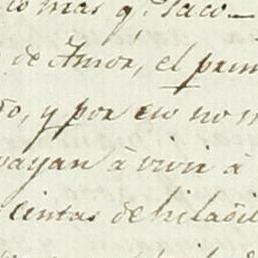 mas q.e saco
de Amor, el prim
y por eso no
vayan à vivir à
cintas de hiladil